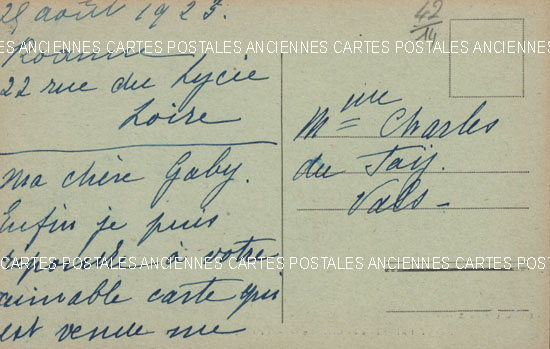 28 août 1923.
42
14
CARTES POSTALES ANCIENNES CARTES POSTALES ANCIENNES CARTES POSTALES ANCIENNES
Roanne
22 rue du Lycée
Loire
Ma chère Gaby.
Enfin je puis
répondre à votre
aimable carte qui
est venue me
Mme Charles
du
Vals
CARTES POSTALES ANCIENNES CARTES POSTALES ANCIENNES CARTES POSTALES ANCIENNES